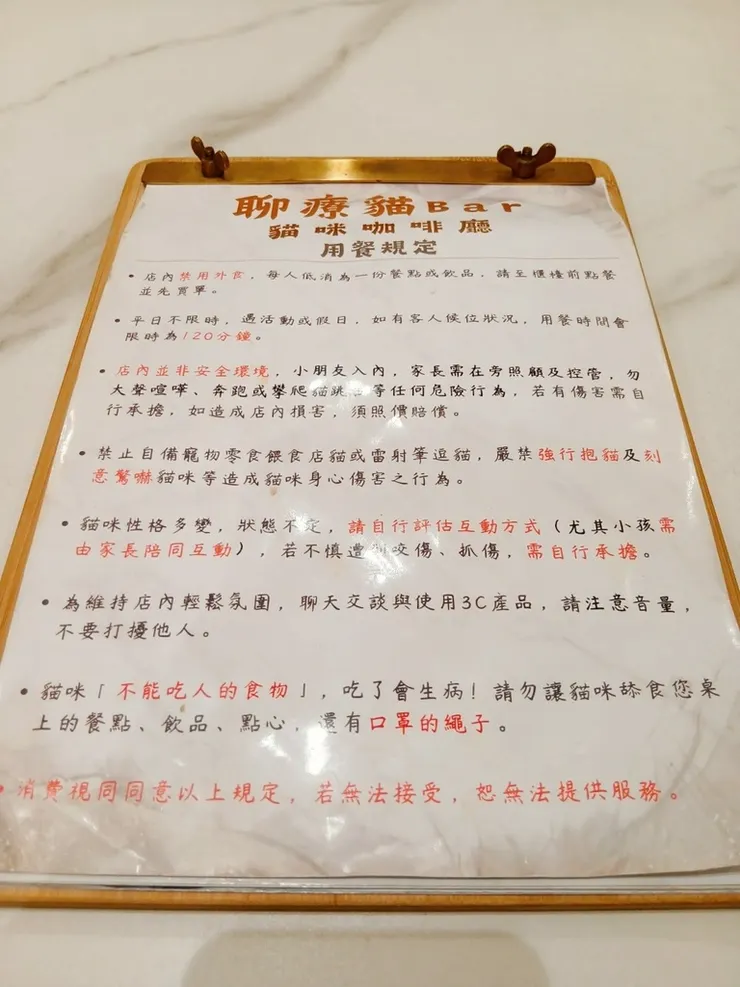 聊療貓Bar
貓咪咖啡廳
用餐規定
• 店內禁用外食，每人低消為一份餐點或飲品，請至櫃檯前點餐
並先買單。
• 平日不限時，遇活動或假日，如有客人候位狀況，用餐時間會
限時為120分鐘。
• 店內並非安全環境，小朋友入內，家長需在旁照顧及控管，勿
大聲喧嘩、奔跑或攀爬貓跳等任何危險行為，若有傷害需自
行承擔，如造成店內損害，須照價賠償。
• 禁止自備寵物零食餵食店貓或雷射筆逗貓，嚴禁強行抱貓及刻
意驚嚇貓咪等造成貓咪身心傷害之行為。
• 貓咪性格多變，狀態不定，請自行評估互動方式（尤其小孩需
由家長陪同互動），若不慎遭咬傷、抓傷，需自行承擔。
• 為維持店內輕鬆氛圍，聊天交談與使用3C產品，請注意音量，
不要打擾他人。
• 貓咪「不能吃人的食物」，吃了會生病！請勿讓貓咪舔食您桌
上的餐點、飲品、點心，還有口罩的繩子。
• 消費視同同意以上規定，若無法接受，恕無法提供服務。